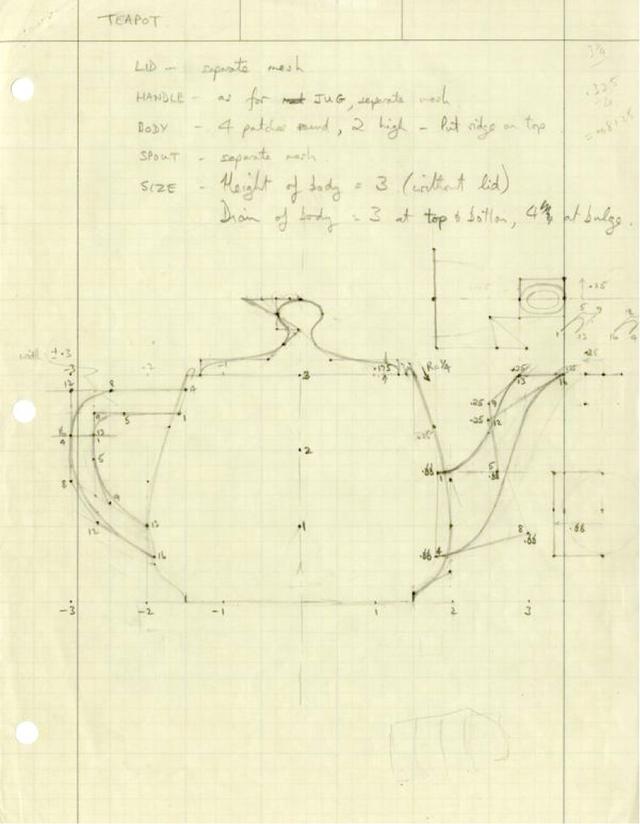 TEAPOT
LID - separate mesh
HANDLE - as for JUG, separate mesh
BODY - 4 patches round, 2 high - Put ridge on top
SPOUT - separate mesh.
SIZE - Height of body = 3 (without lid)
Diam of body = 3 at top & bottom, 4 at bulge.
3¼
.325
.25
5
width ± .3
-3
-2
-1
.175
R=¼
.25
13
16
12
8
4
3
9
5
1
.25
9
.25
12
2
.225
8
5
9
13
.66
1
5
.66
12
16
1
.66
4
8
.66
.66
-3
-2
-1
1
2
3